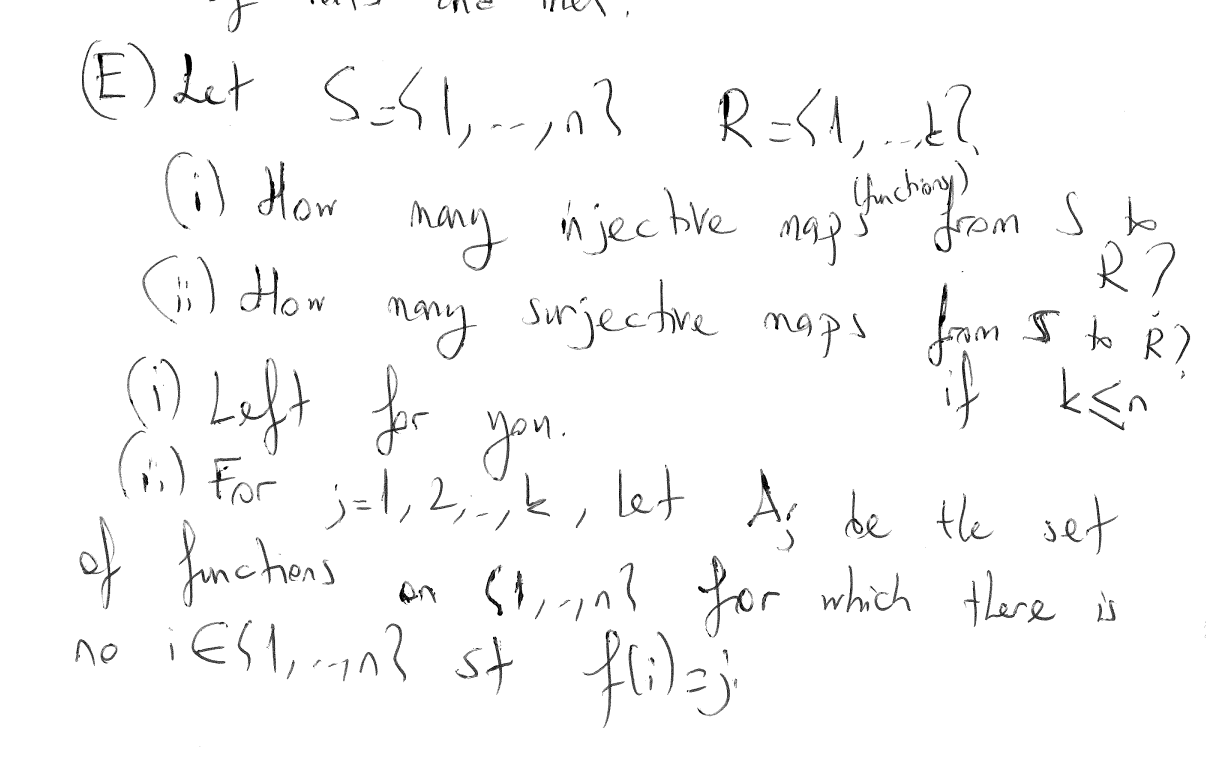 (E) Let S={1,..,n} R={1,..,k}
(i) How many injective maps (functions) from S to
R?
(ii) How many surjective maps from S to R?
if k≤n
(i) Left for you.
(ii) For j=1,2,..,k, let Aj be the set
of functions on {1,..,n} for which there is
no i∈{1,..,n} st f(i)=j